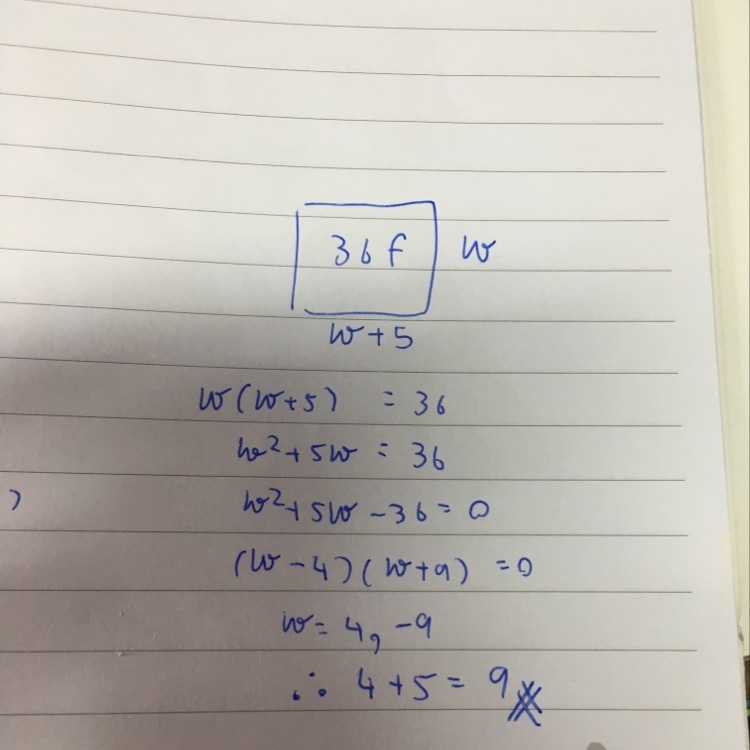 36 f
w
w+5
w(w+5) = 36
w²+5w = 36
w²+5w-36=0
(w-4)(w+9) =0
w=4,-9
∴ 4+5=9